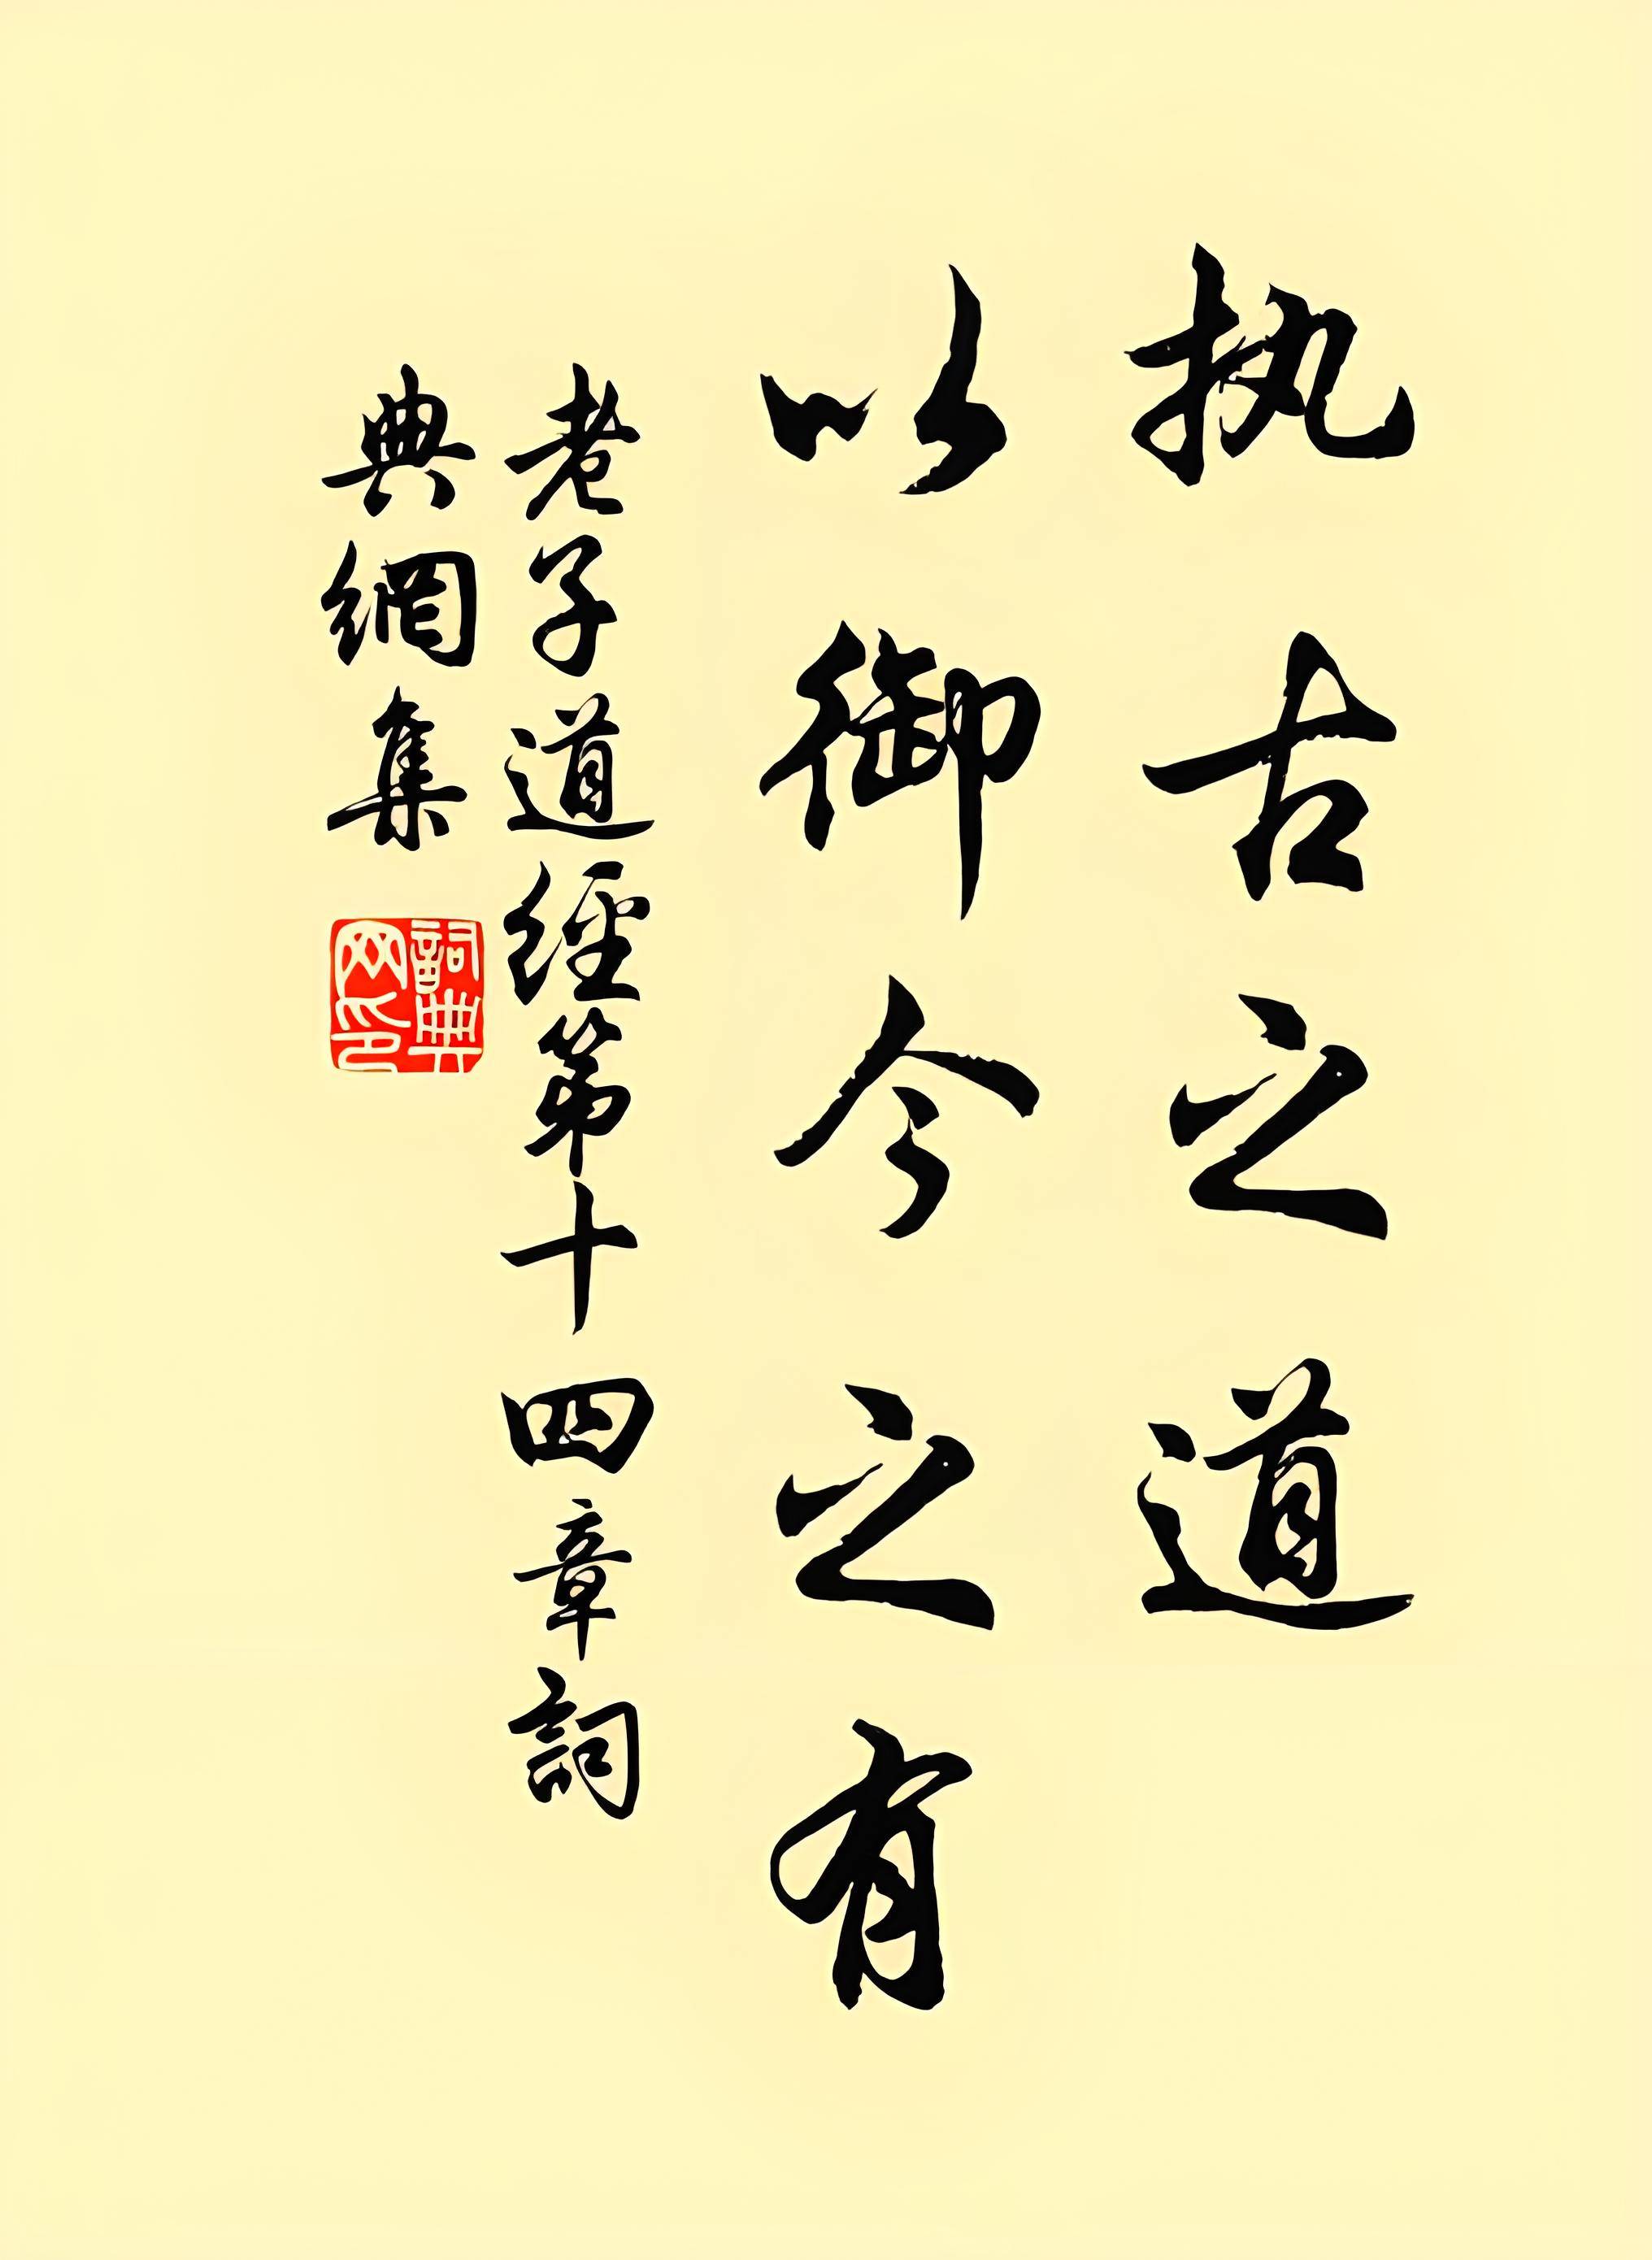 执古之道
以御今之有
老子道經第十四章詞
典網集
詞典网之印